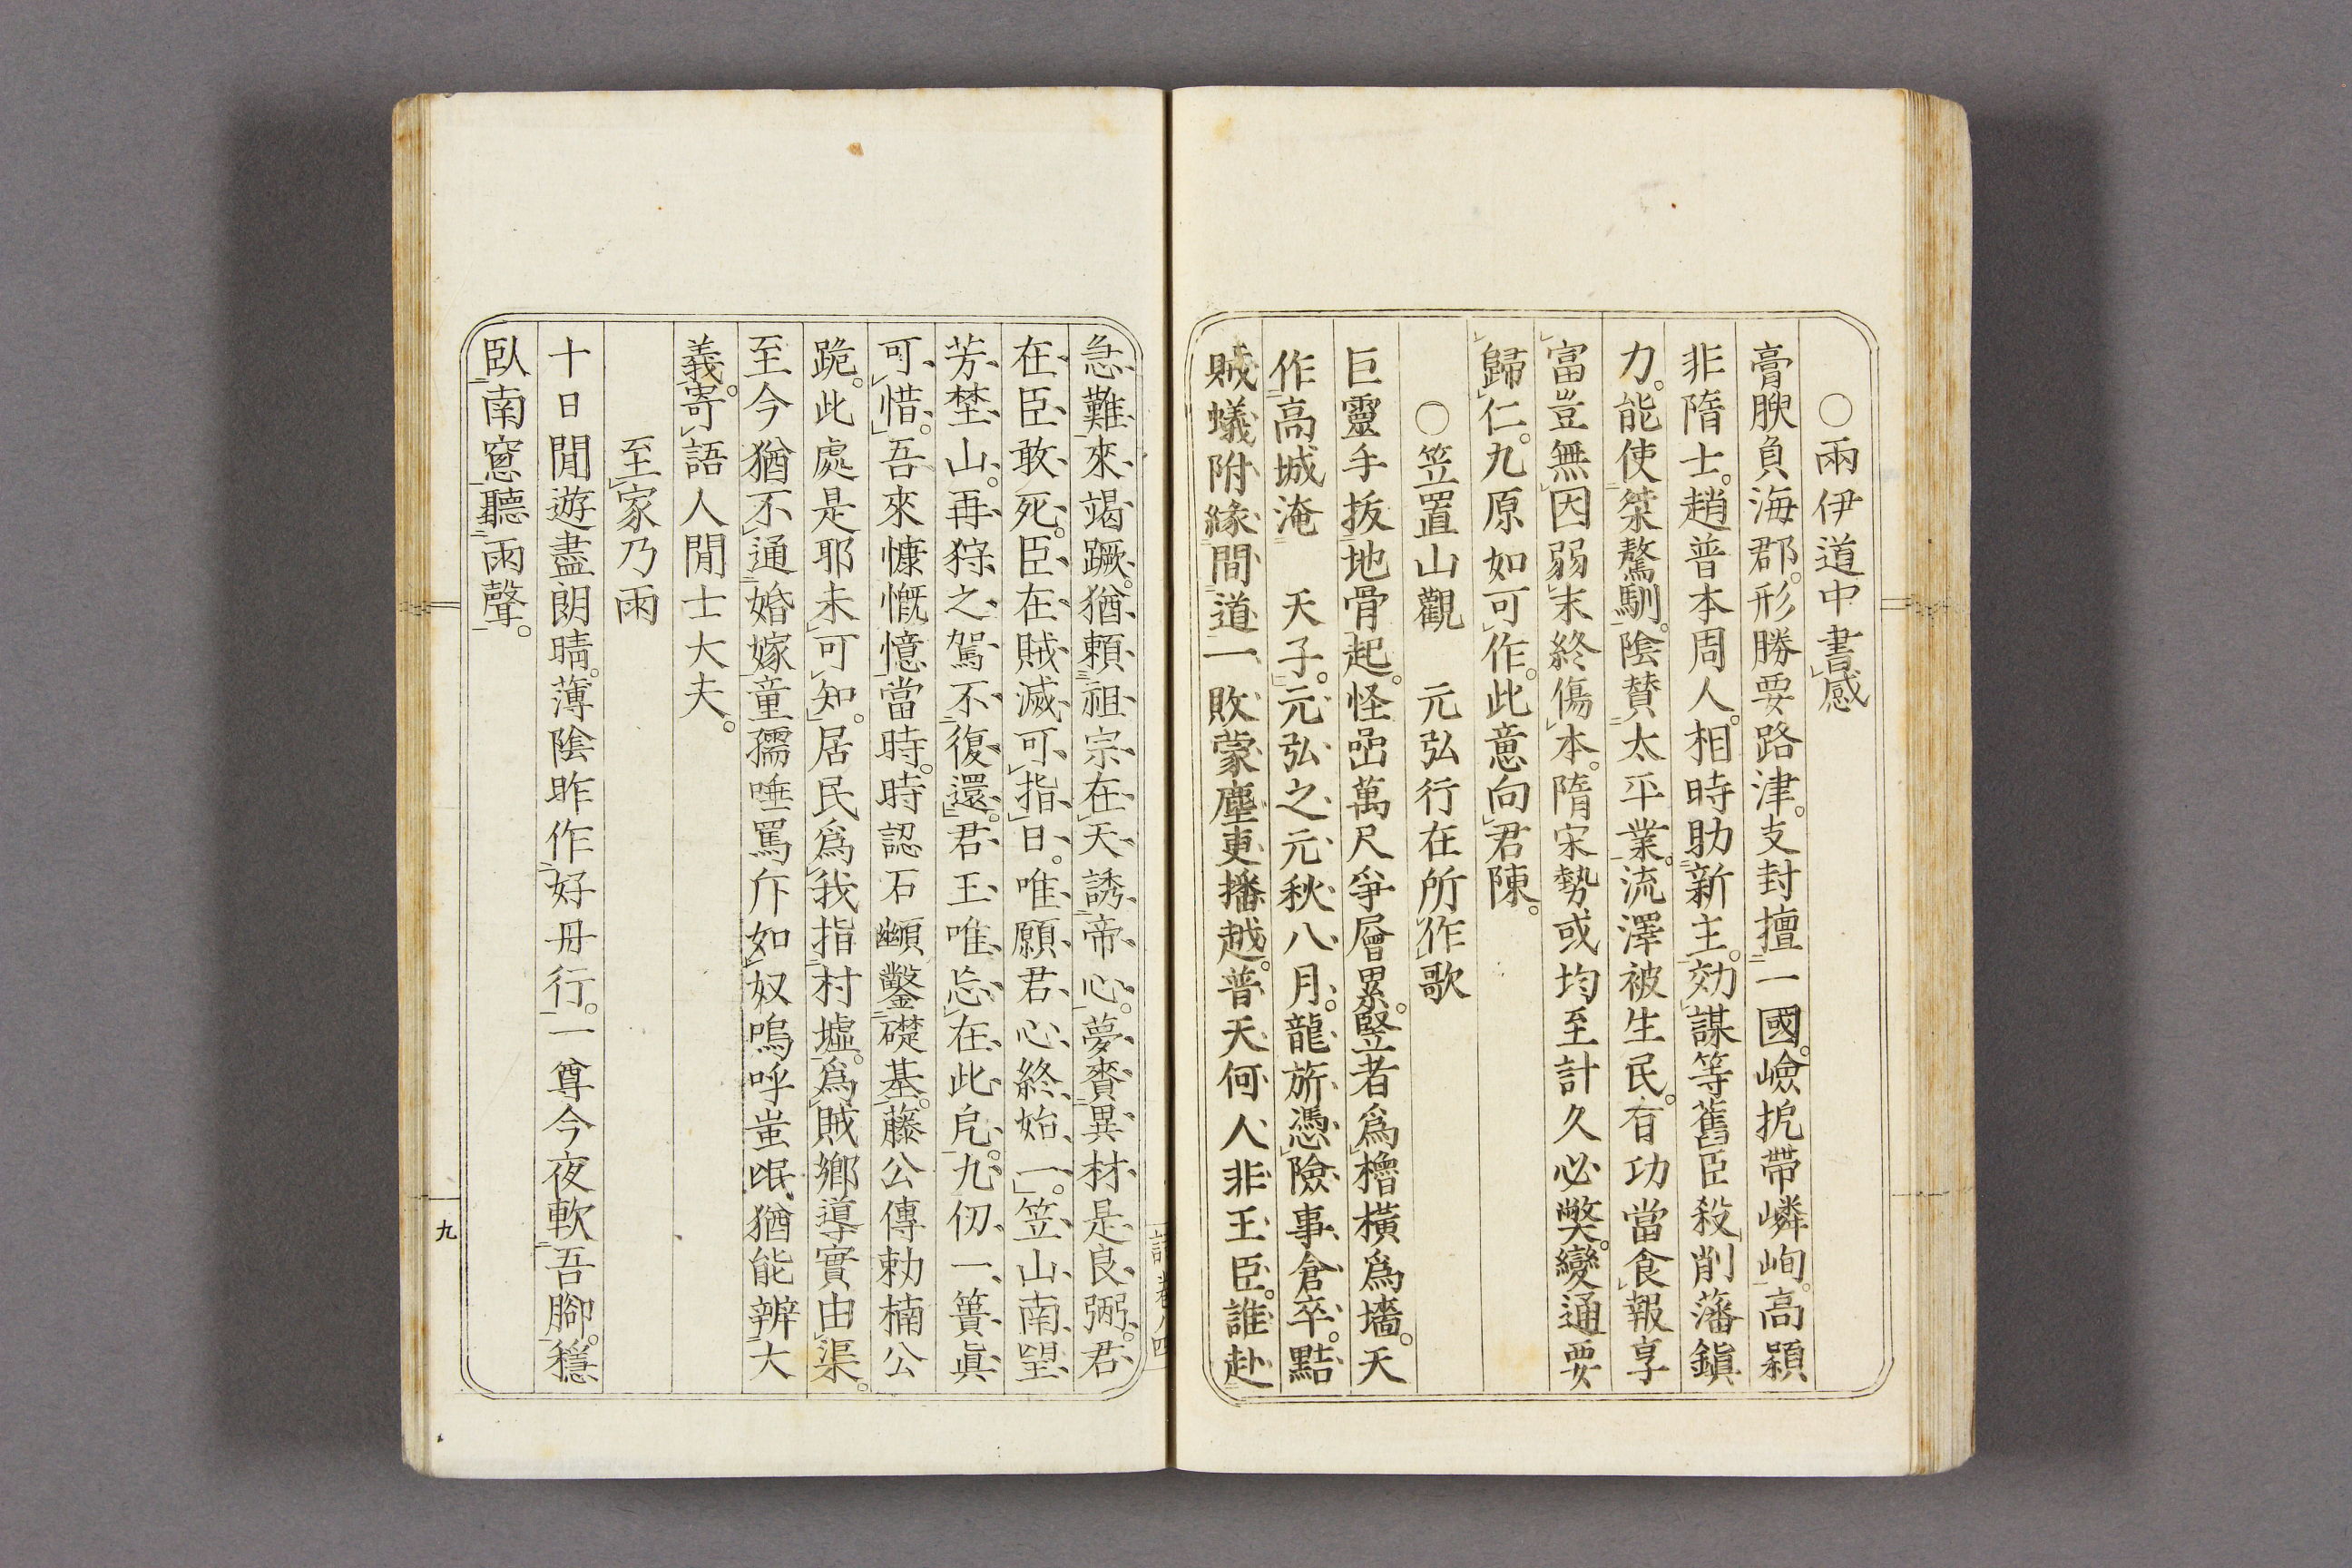 ○兩伊道中書感
膏腴負海郡。形勝要路津。支封擅一國。嶮扼帶嶙峋。高熲
非隋士。趙普本周人。相時助新主。効謀等舊臣。殺削藩鎭
力。能使桀驁馴。陰賛太平業。流澤被生民。有功當食報享
富豈無因。弱末終傷本。隋宋勢或均。至計久必獘。變通要
歸仁。九原如可作。此意向君陳。
○笠置山觀　元弘行在所作歌
巨靈手拔地骨起。怪嵒萬尺爭層累。竪者爲櫓橫爲墻。天
作高城淹　天子。元弘之元秋八月。龍旂憑險事倉卒。黠
賊蟻附緣間道。一敗蒙塵更播越。普天何人非王臣。誰赴
急難來竭蹶。猶賴祖宗在天誘帝心。夢賚異材是良弼。君
在臣敢死。臣在賊滅可指日。唯願君心終始一。笠山南望
芳埜山。再狩之駕不復還。君王唯忘在此㞐。九仞一簣眞
可惜。吾來慷慨憶當時。時認石顱鑿礎基。藤公傳勅楠公
跪。此處是耶未可知。居民爲我指村墟。爲賊鄉導實由渠。
至今猶不通婚嫁。童孺唾罵斥如奴。嗚呼蚩氓猶能辨大
義。寄語人間士大夫。
至家乃雨
十日閒遊盡朗晴。薄陰昨作好舟行。一尊今夜軟吾腳。穩
臥南窻聽雨聲。
九